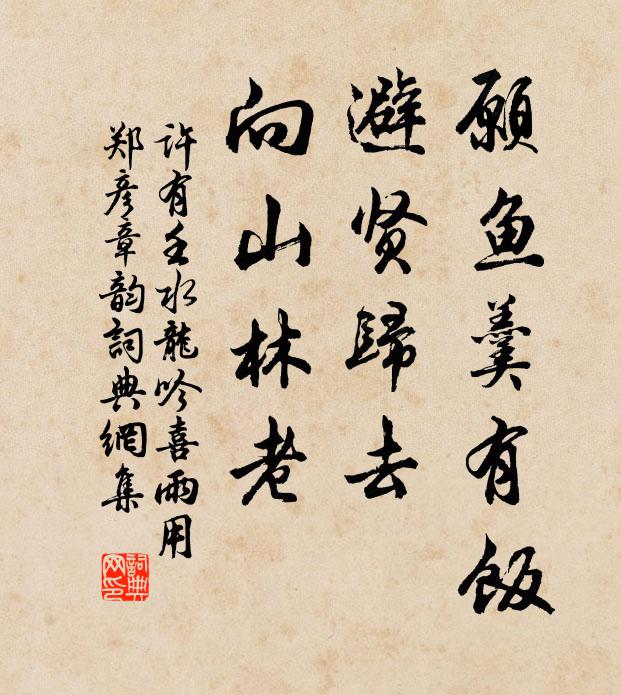 願鱼羹有飯
避贤歸去
向山林老
许有壬水龍吟喜雨用
郑彦章韵詞典網集
詞典网印